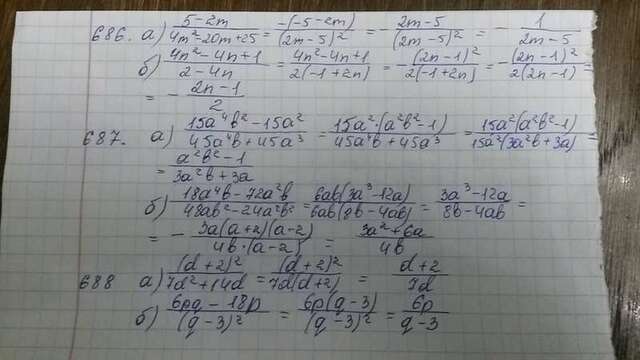 686. а) (5-2m)/(4m²-20m+25) = (-(-5-2m))/((2m-5)²) = -(2m-5)/((2m-5)²) = -1/(2m-5)
б) (4n²-4n+1)/(2-4n) = (4n²-4n+1)/(2(-1+2n)) = -((2n-1)²)/(2(-1+2n)) = -((2n-1)²)/(2(2n-1)) =
= -(2n-1)/2
687. а) (15a⁴b²-15a²)/(45a⁴b+45a³) = (15a²·(a²b²-1))/(45a⁴b+45a³) = (15a²(a²b²-1))/(15a²(3a²b+3a)) =
= (a²b²-1)/(3a²b+3a)
б) (18a⁴b-72a²b)/(48ab²-24a²b²) = (6ab(3a³-12a))/(6ab(8b-4ab)) = (3a³-12a)/(8b-4ab) =
= -(3a(a+2)(a-2))/(4b·(a-2)) = (3a²+6a)/(4b)
688 а) ((d+2)²)/(7d²+14d) = ((d+2)²)/(7d(d+2)) = (d+2)/(7d)
б) (6pq-18p)/((q-3)²) = (6p(q-3))/((q-3)²) = (6p)/(q-3)